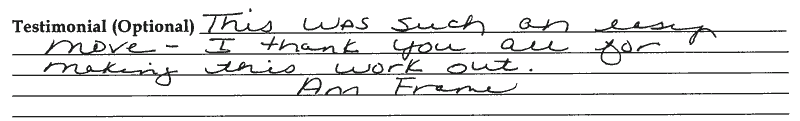 Testimonial (Optional) This was such an easy
move - I thank you all for
making this work out.
Ann Frame